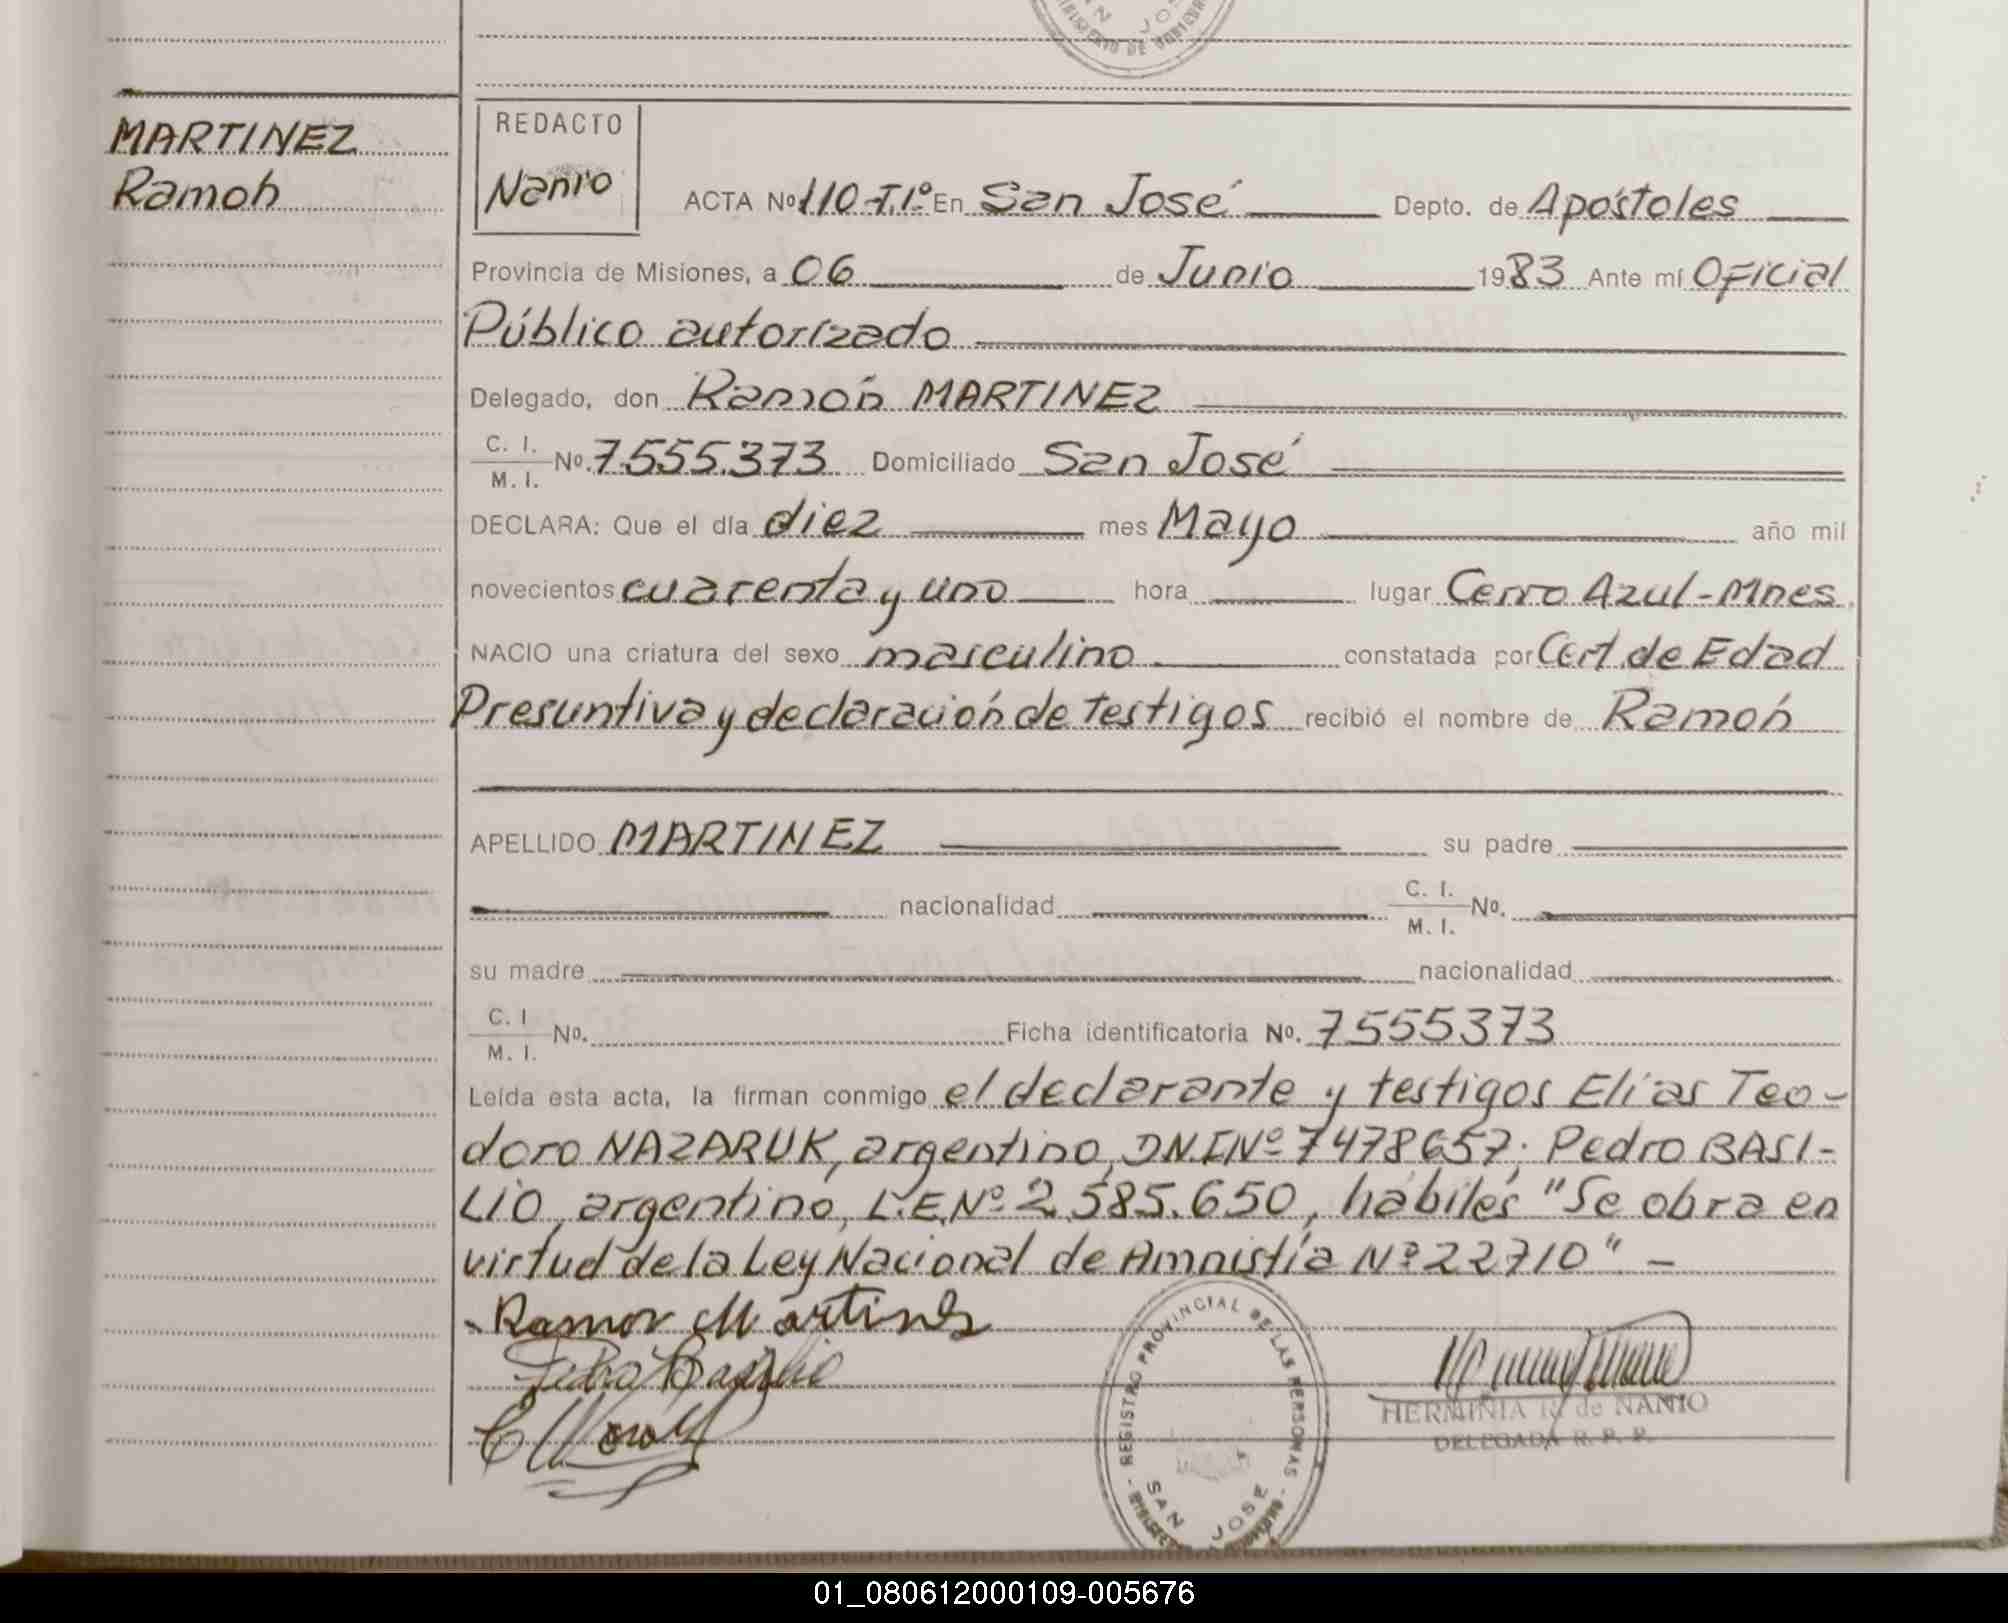 SAN JOSE
MARTINEZ
Ramón
REDACTO
Nanio
ACTA Nº 110-T.1º En San José Depto. de Apóstoles
Provincia de Misiones, a 06 de Junio 1983 Ante mí Oficial
Público autorizado
Delegado, don Ramón MARTINEZ
C. I.
M. I. Nº. 7.555.373 Domiciliado San José
DECLARA: Que el día diez mes Mayo año mil
novecientos cuarenta y uno hora lugar Cerro Azul-Mnes.
NACIO una criatura del sexo masculino constatada por Cert. de Edad
Presuntiva y declaración de Testigos recibió el nombre de Ramón
APELLIDO MARTINEZ su padre
nacionalidad C. I.
M. I. Nº.
su madre nacionalidad
C. I
M. I. Nº. Ficha identificatoria Nº. 7555373
Leída esta acta, la firman conmigo el declarante y testigos Elías Teo-
doro NAZARUK, argentino, DN.INº 7478657; Pedro BASI-
LIO, argentino, L.E.Nº 2.585.650, hábiles "Se obra en
virtud de la Ley Nacional de Amnistía Nº 22710" -
Ramon Martines
Pedro Basilio
REGISTRO PROVINCIAL DE LAS PERSONAS
SAN JOSE
HERMINIA R. de NANIO
DELEGADA R. P. P.
01_080612000109-005676